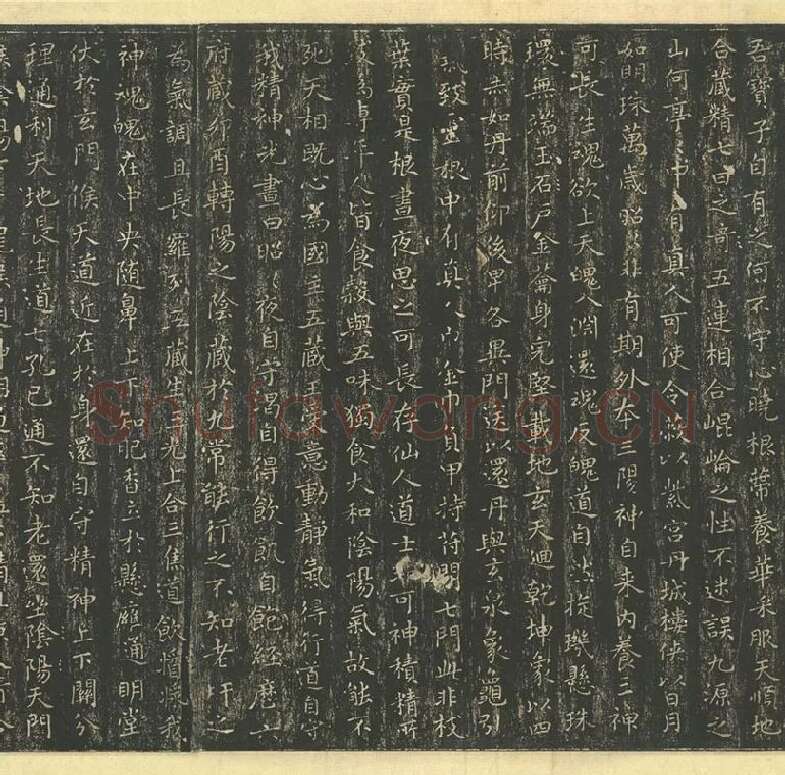 吾寶子自有之何不守心曉根蔕養華采服天順地
合藏精七日之奇五連相合崐崘之性不迷誤九源之
山何亭亭中有真人可使令蔽以紫宮丹城樓俠以日月
如明珠萬歲昭昭非有期外本三陽神自來內養三神
可長生魂欲上天魄入淵還魂反魄道自然旋璣懸珠
環無端玉石戶金籥身完堅載地玄天迴乾坤象以四
時赤如丹前仰後卑各異門送以還丹與玄泉象龜引
氣致靈根中有真人巾金巾負甲持符開七門此非枝
葉實是根晝夜思之可長存仙人道士非可神積精所
致為專年人皆食穀與五味獨食大和陰陽氣故能不
死天相既心為國主五藏王受意動靜氣得行道自守
我精神光晝日昭〻夜自守渴自得飲飢自飽經歷六
府藏卯酉轉陽之陰藏於九常能行之不知老肝之
為氣調且長羅列五藏生三光上合三焦道飲醬漿我
神魂魄在中央隨鼻上下知肥香立於懸膺通明堂
伏於玄門候天道近在於身還自守精神上下關分
理通利天地長生道七孔已通不知老還坐陰陽天門
Shufawang.CN